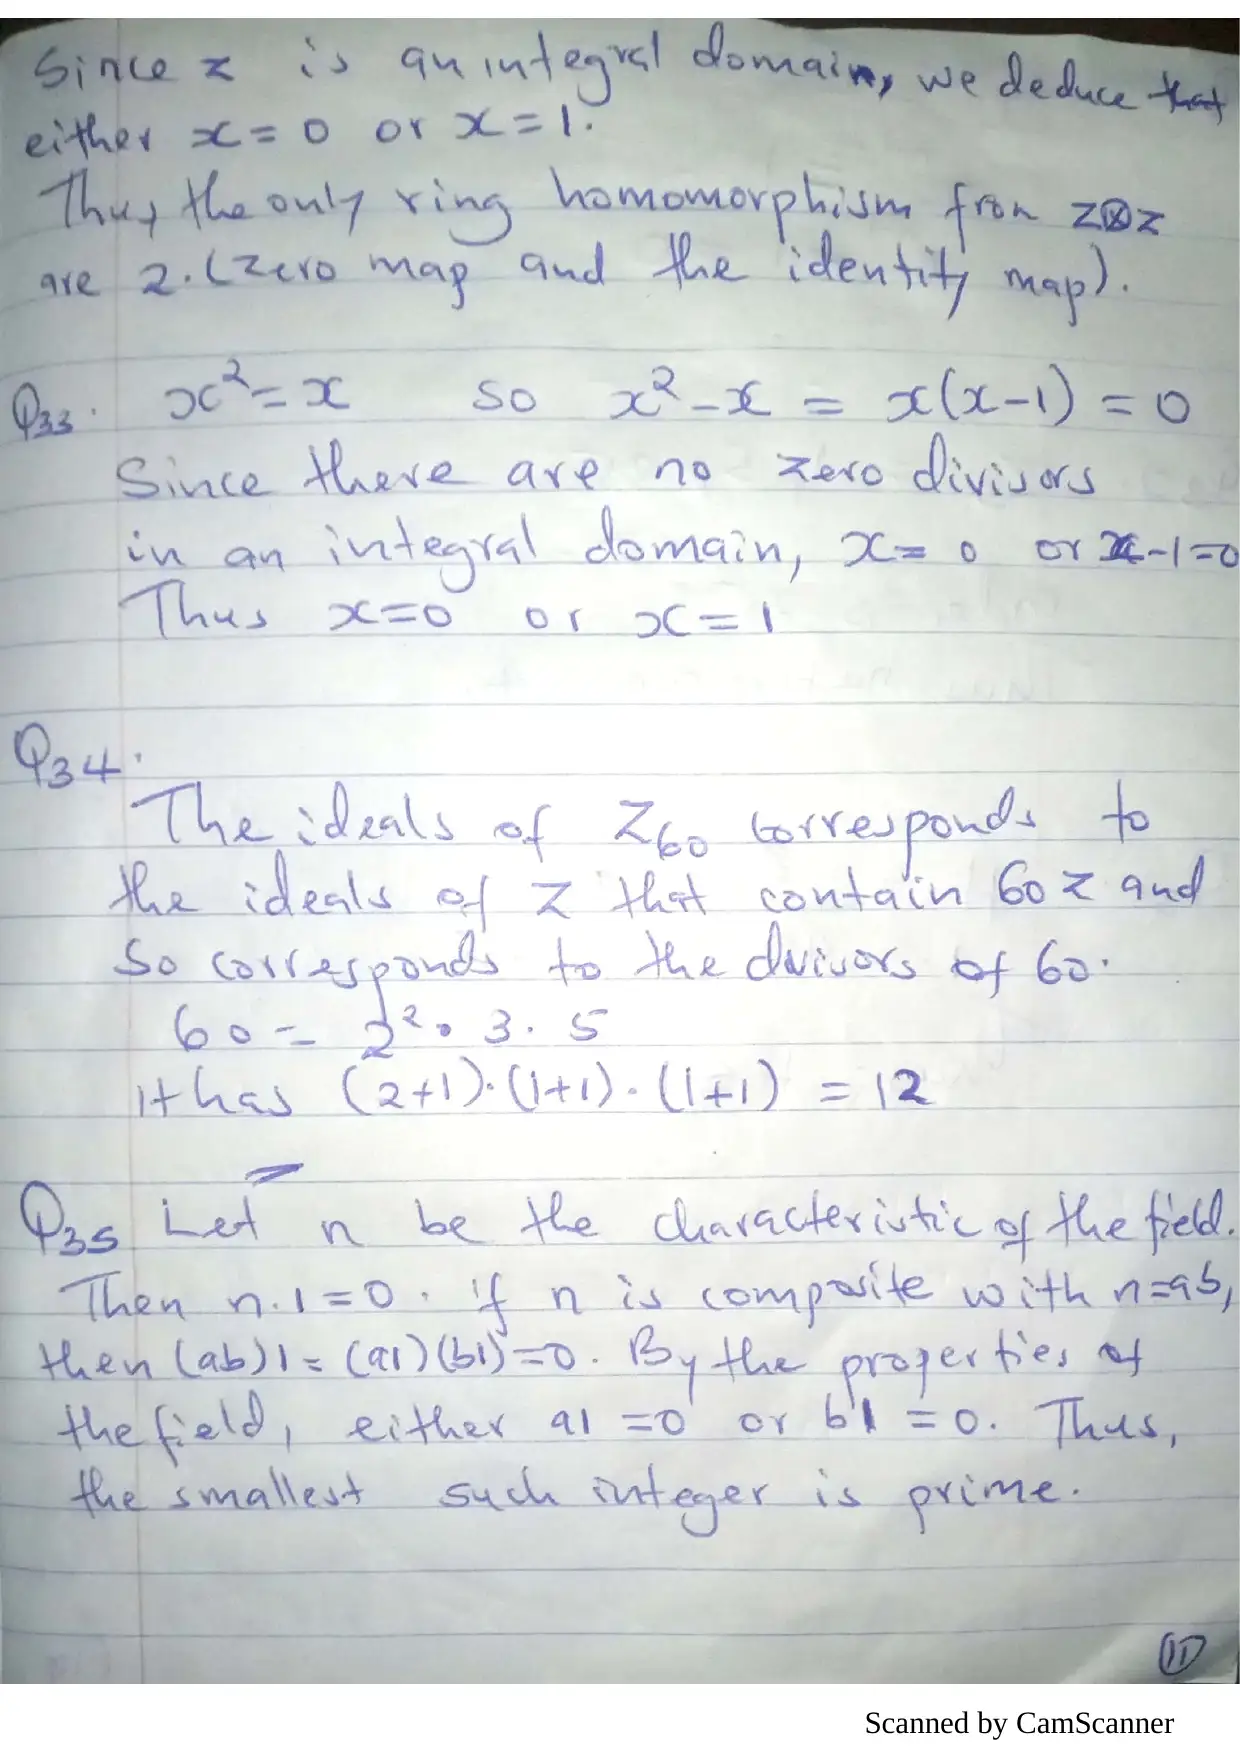 Since z is an integral domain, we deduce that
either x = 0 or x = 1.
Thus the only ring homomorphism from z⊗z
are 2. (zero map and the identity map).
Q33. x² = x so x² - x = x(x-1) = 0
Since there are no zero divisors
in an integral domain, x = 0 or x-1=0
Thus x=0 or x=1
Q34.
The ideals of Z₆₀ corresponds to
the ideals of Z that contain 60z and
so corresponds to the duivors of 60.
60 = 2². 3. 5
it has (2+1).(1+1).(1+1) = 12
Q35 Let n be the characteristic of the field.
Then n.1=0. if n is composite with n=ab,
then (ab)1 = (a1)(b1)=0. By the properties of
the field, either a1 = 0 or b1 = 0. Thus,
the smallest such integer is prime.
11
Scanned by CamScanner